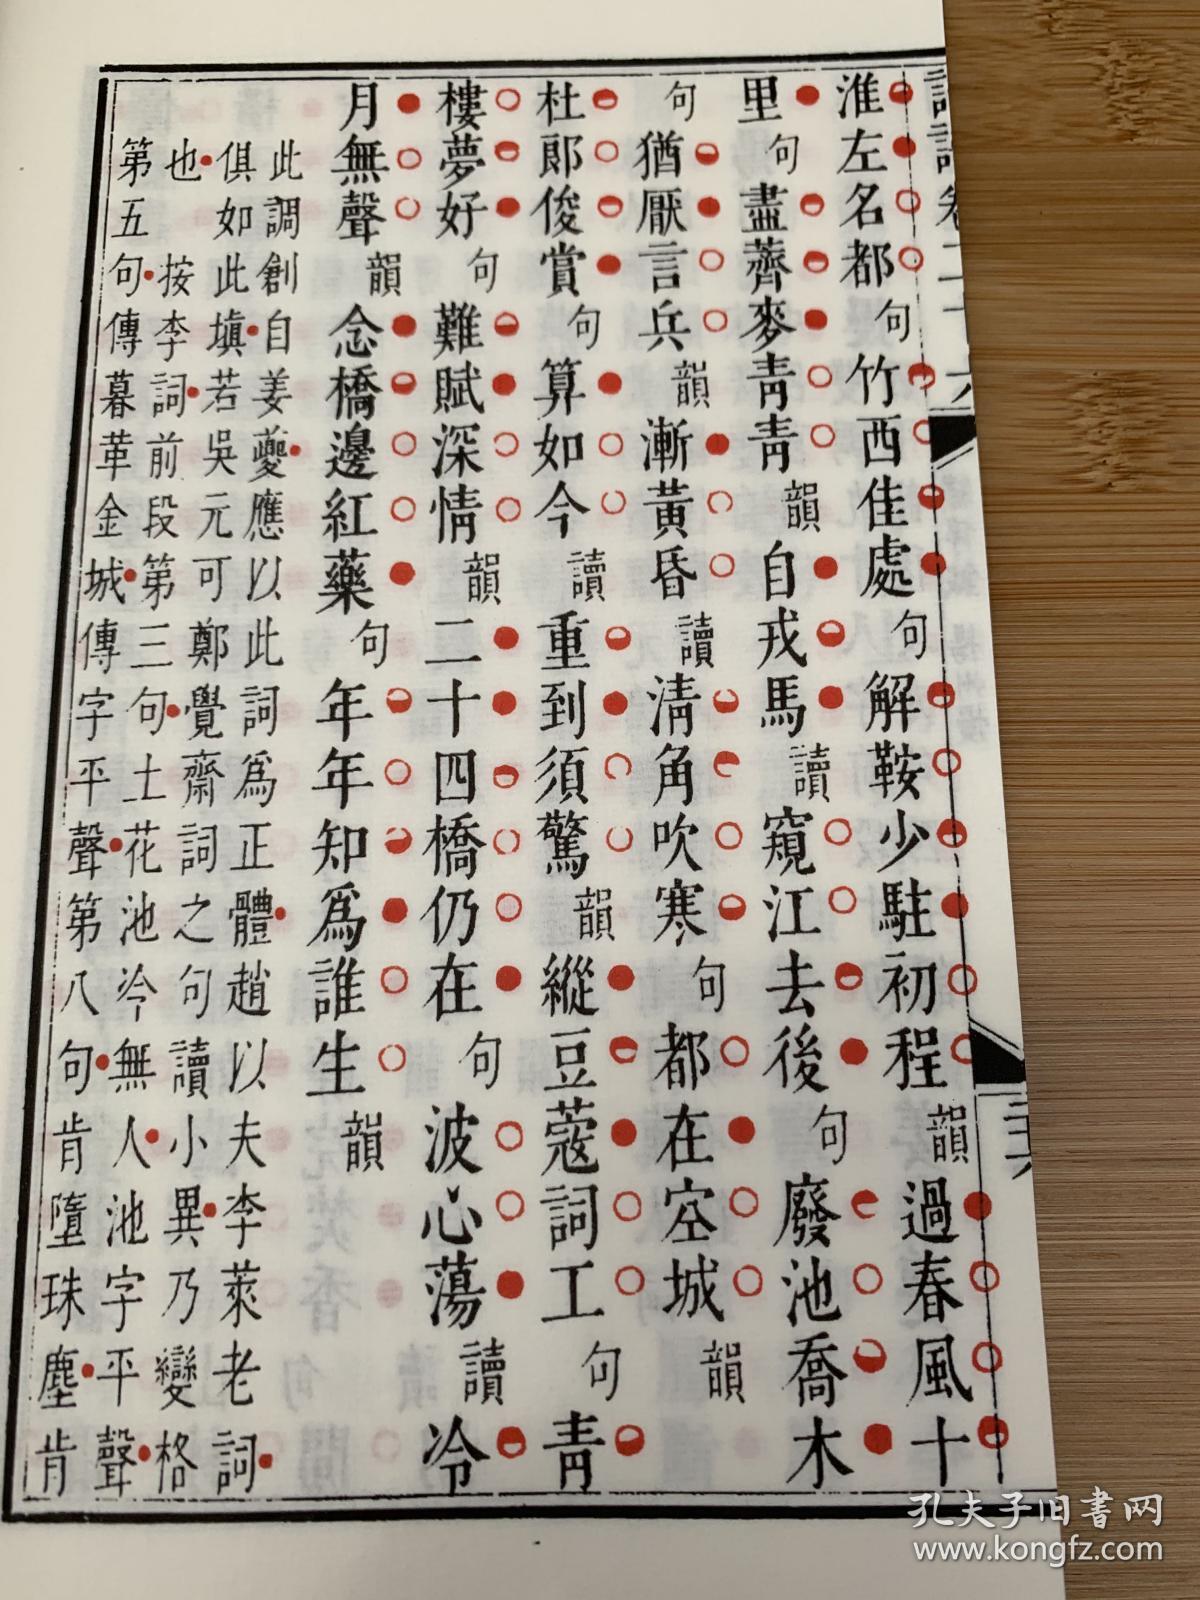 淮左名都句竹西佳處句解鞍少駐初程韻過春風十
里句盡薺麥青青韻自戎馬讀窺江去後句廢池喬木
句猶厭言兵韻漸黃昏讀清角吹寒句都在空城韻
杜郎俊賞句算如今讀重到須驚韻縱豆蔻詞工句青
樓夢好句難賦深情韻二十四橋仍在句波心蕩讀冷
月無聲韻念橋邊紅藥句年年知爲誰生韻
此調創自姜夔應以此詞爲正體趙以夫李萊老詞
俱如此塡若吳元可鄭覺齋詞之句讀小異乃變格
也按李詞前段第三句土花池冷無人池字平聲
第五句傳暮革金城傳字平聲第八句肯墮珠塵肯
孔夫子旧书网
www.kongfz.com